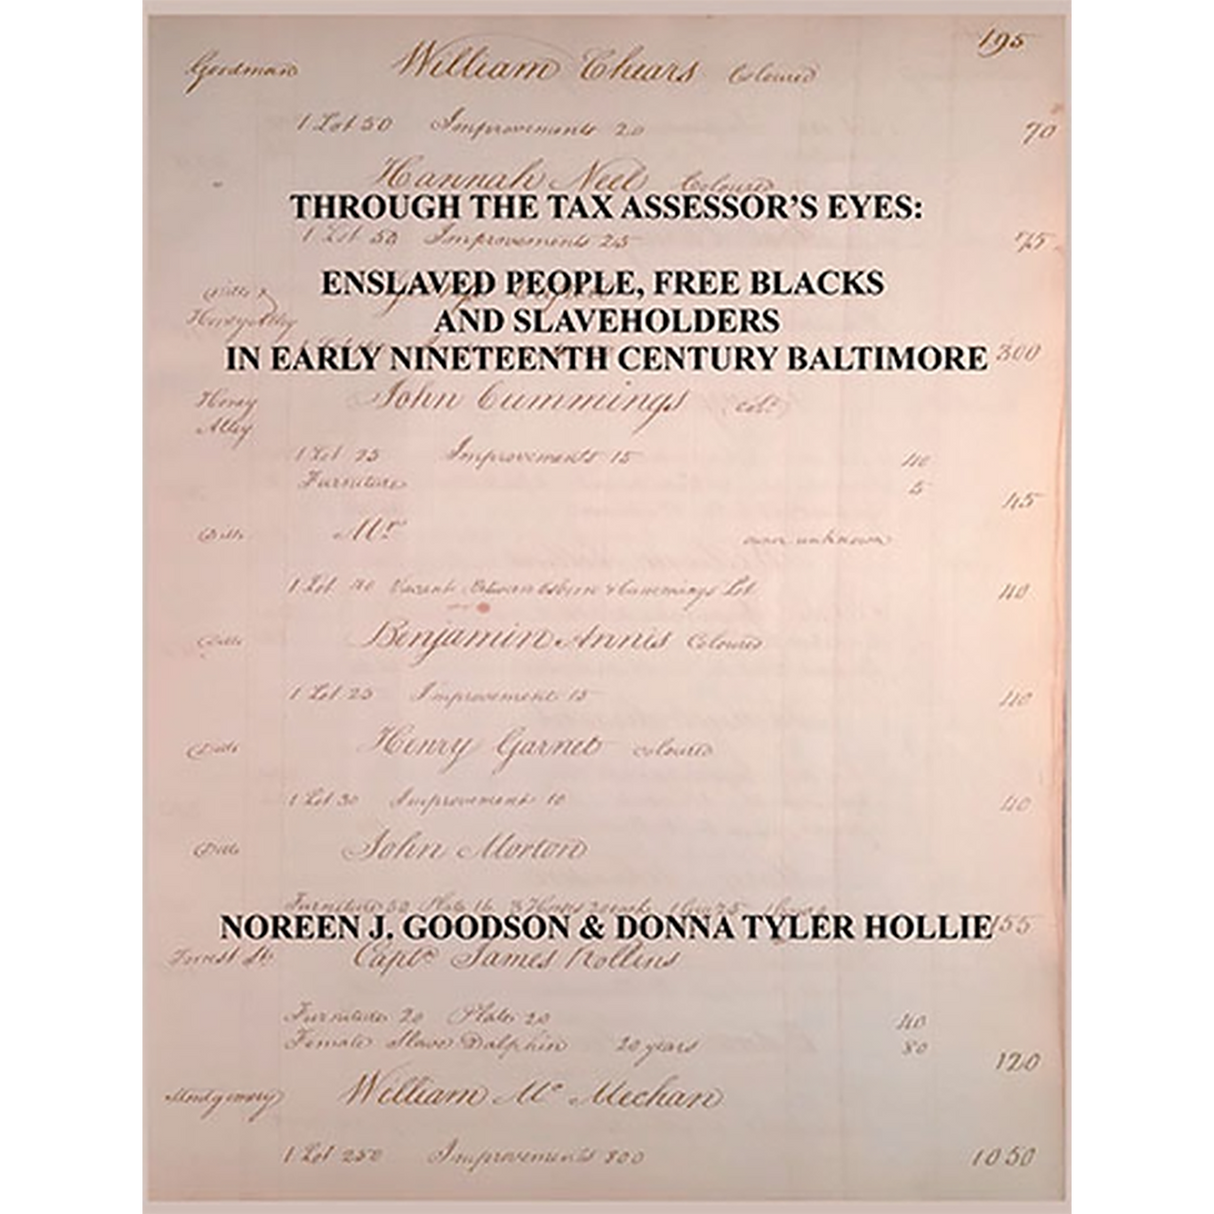 195
Goodman William Chears Coloured
1 Lot 50 Improvements 20 70
Hannah Neel Coloured
THROUGH THE TAX ASSESSOR'S EYES:
1 Lot 50 Improvements 25 75
ENSLAVED PEOPLE, FREE BLACKS
AND SLAVEHOLDERS
IN EARLY NINETEENTH CENTURY BALTIMORE 300
Honey John Cummings
Alley
1 Lot 25 Improvements 15 40
Furniture 5
45
Ditto Mr owner unknown
1 Lot 40 Vacant Between & Cummings Lot 40
Ditto Benjamin Annis Coloured
1 Lot 25 Improvement 15 40
Ditto Henry Garnet coloured
1 Lot 30 Improvement 10 40
Ditto John Morton
Furniture 155
NOREEN J. GOODSON & DONNA TYLER HOLLIE
Forrest St Capt James Rollins
Furniture 20 Plate 20 40
Female Slave Dalphin 20 years 80
120
Montgomery William Mc Mechan
1 Lot 250 Improvements 800 1050